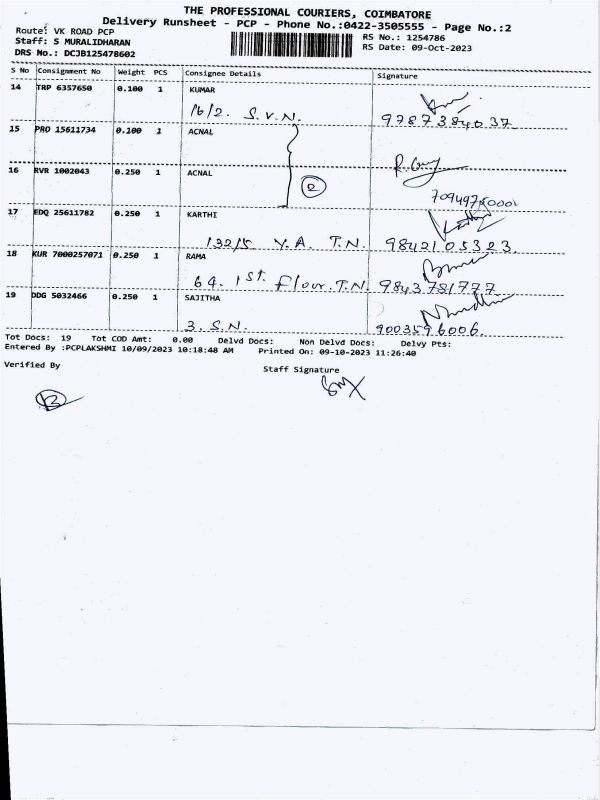 THE PROFESSIONAL COURIERS, COIMBATORE
Delivery Runsheet - PCP - Phone No.:0422-3505555 - Page No.:2
Route: VK ROAD PCP
Staff: S MURALIDHARAN
DRS No.: DCJB125478602
RS No.: 1254786
RS Date: 09-Oct-2023
S No Consignment No Weight PCS Consignee Details Signature
14 TRP 6357650 0.100 1 KUMAR
16/2. S.V.N. 9787384037
15 PRO 15611734 0.100 1 ACNAL
16 RVR 1002043 0.250 1 ACNAL
2
17 EDQ 25611782 0.250 1 KARTHI
132/5 Y.A. T.N. 9842105323
18 KUR 7000257071 0.250 1 RAMA
64. 1st. Flour. T.N. 9843781777
19 DDG 5032466 0.250 1 SAJITHA
3. S.N. 9003596006.
Tot Docs: 19 Tot COD Amt: 0.00 Delvd Docs: Non Delvd Docs: Delvy Pts:
Entered By :PCPLAKSHMI 10/09/2023 10:18:48 AM Printed On: 09-10-2023 11:26:40
Verified By
Staff Signature